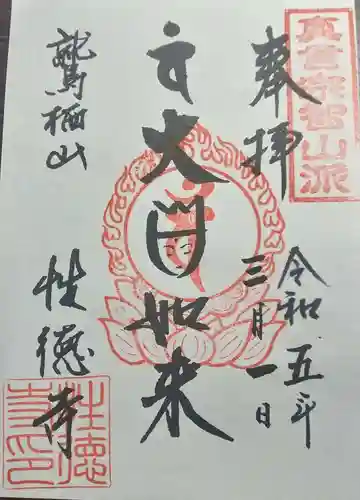 真言宗智山派
奉拝
令和五年
三月一日
大日如来
鷲栖山
性徳寺
性徳
寺印